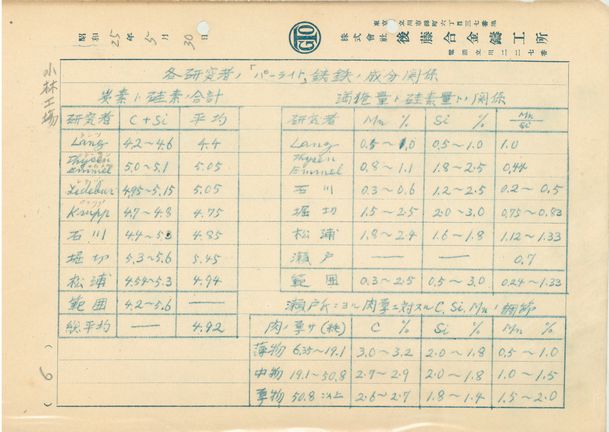 東京都立川市錦町六丁目三七番地
株式會社 後藤合金鑄工所
電話立川二二七番
GTO
昭和 25年 5月 30日
小林工場
各研究者ノ「パーライト」鋳鉄ノ成分関係
炭素ト硅素ノ合計
研究者 C+Si 平均
Lang 4.2~4.6 4.4
Thyssen Emmel 5.0~5.1 5.05
Ledebur 4.95~5.15 5.05
Krupp 4.7~4.8 4.75
石川 4.85
堀切 5.3~5.6 5.45
松浦 4.54~5.3 4.94
範囲 4.2~5.6 —
総平均 — 4.92
満俺量ト硅素量トノ関係
研究者 Mn % Si % Mn/Si
Lang 0.5~1.0 0.5~1.0 1.0
Thyssen Emmel 0.8~1.1 1.8~2.5 0.44
石川 0.3~0.6 1.2~2.5 0.2~0.5
堀切 1.5~2.5 2.0~3.0 0.75~0.83
松浦 1.8~2.4 1.6~1.8 1.12~1.33
瀬戸 — — 0.7
範囲 0.3~2.5 0.5~3.0 0.24~1.33
瀬戸氏ニヨル肉厚ニ対スルC, Si, Mnノ調節
肉ノ厚サ(粍) C % Si % Mn %
薄物 6.35~19.1 3.0~3.2 2.0~1.8 0.5~1.0
中物 19.1~50.8 2.7~2.9 2.0~1.8 1.0~1.5
厚物 50.8以上 2.6~2.7 1.8~1.4 1.5~2.0
(6)